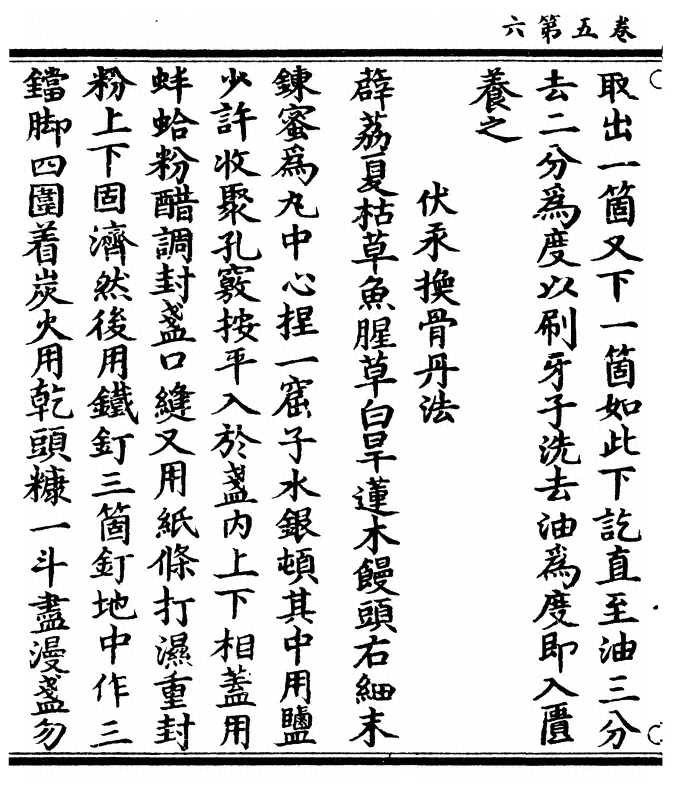 六第五卷
取出一箇又下一箇如此下訖直至油三分
去二分爲度以刷牙子洗去油爲度即入匱
養之
伏汞換骨丹法
薜荔夏枯草魚腥草白旱蓮木饅頭右細末
鍊蜜爲丸中心捏一窟子水銀頓其中用鹽
少許收聚孔竅按平入於盞內上下相蓋用
蚌蛤粉醋調封盞口縫又用紙條打濕重封
粉上下固濟然後用鐵釘三箇釘地中作三
鐺脚四圍着炭火用乾頭糠一斗盡漫盞勿